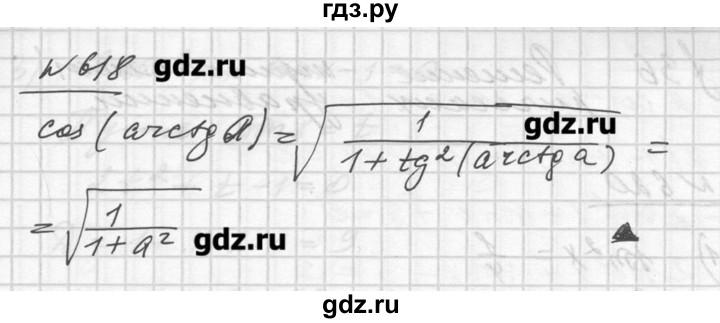 гдз.ру
N 618 gdz.ru
cos(arctg a) = √(1/(1+tg²(arctg a))) = gdz.ru
= √(1/(1+a²)) gdz.ru
gdz.ru